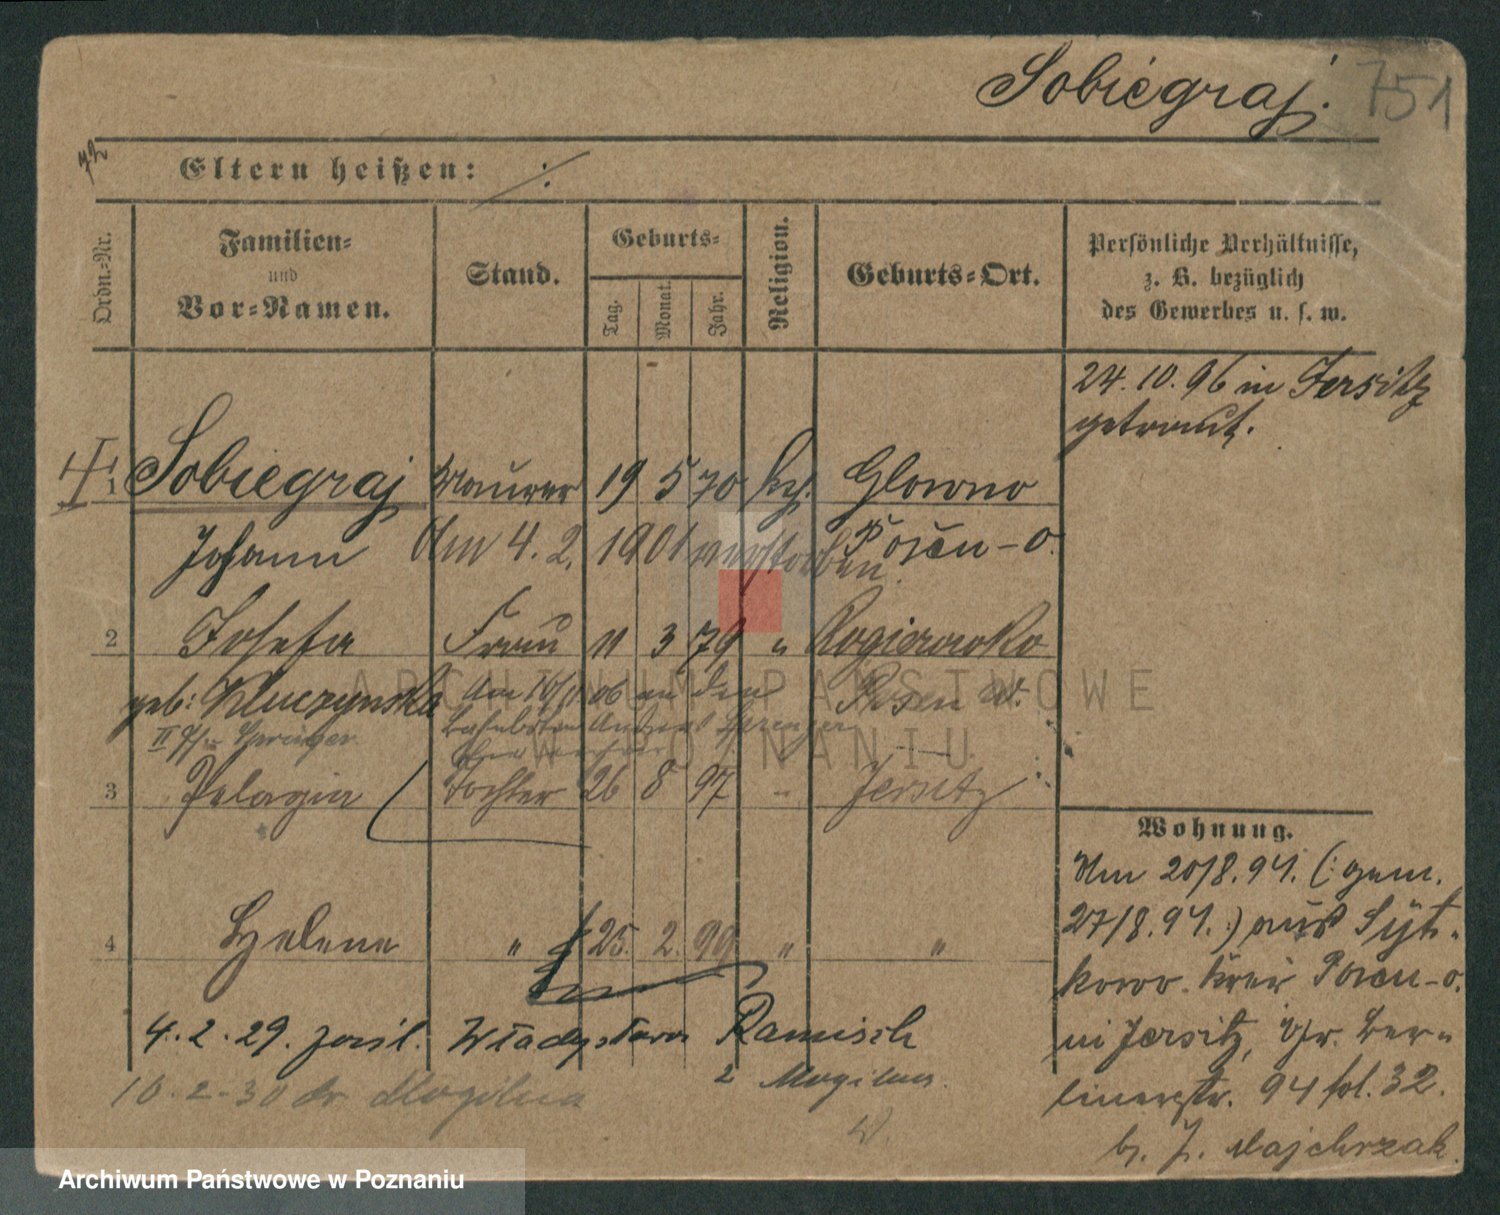 Sobiegraj. 751
Eltern heißen: ·/·
Ordn.=Nr.
Familien=
und
Vor=Namen.
Stand.
Geburts=
Tag.
Monat.
Jahr.
Religion.
Geburts=Ort.
Persönliche Verhältnisse,
z. B. bezüglich
des Gewerbes u. s. w.
24. 10. 96 in Jersitz
getraut.
1 Sobiegraj Maurer 19 5 70 kth. Glowno
Johann Am 4. 2. 1901 verstorben Posen-O.
2 Josefa Frau 11 3 79 " Rogierowko
geb: Kluczynska Am 16/11 06 mit dem Posen W.
3 Pelagia Tochter 26 8 97 " Jersitz
4 Helene " 25. 2. 99 " "
4. 2. 29. Władysława Ramisch
10-2-30 Mogilna
2 Mogilna.
Wohnung.
Am 20/8. 91. (: gem.
27/8. 91. :) aus
Posen-O.
in Jersitz, Gr. Ber=
linerstr. 94 fol. 32.
b. J. Majchrzak
ARCHIWUM PAŃSTWOWE
W POZNANIU
Archiwum Państwowe w Poznaniu